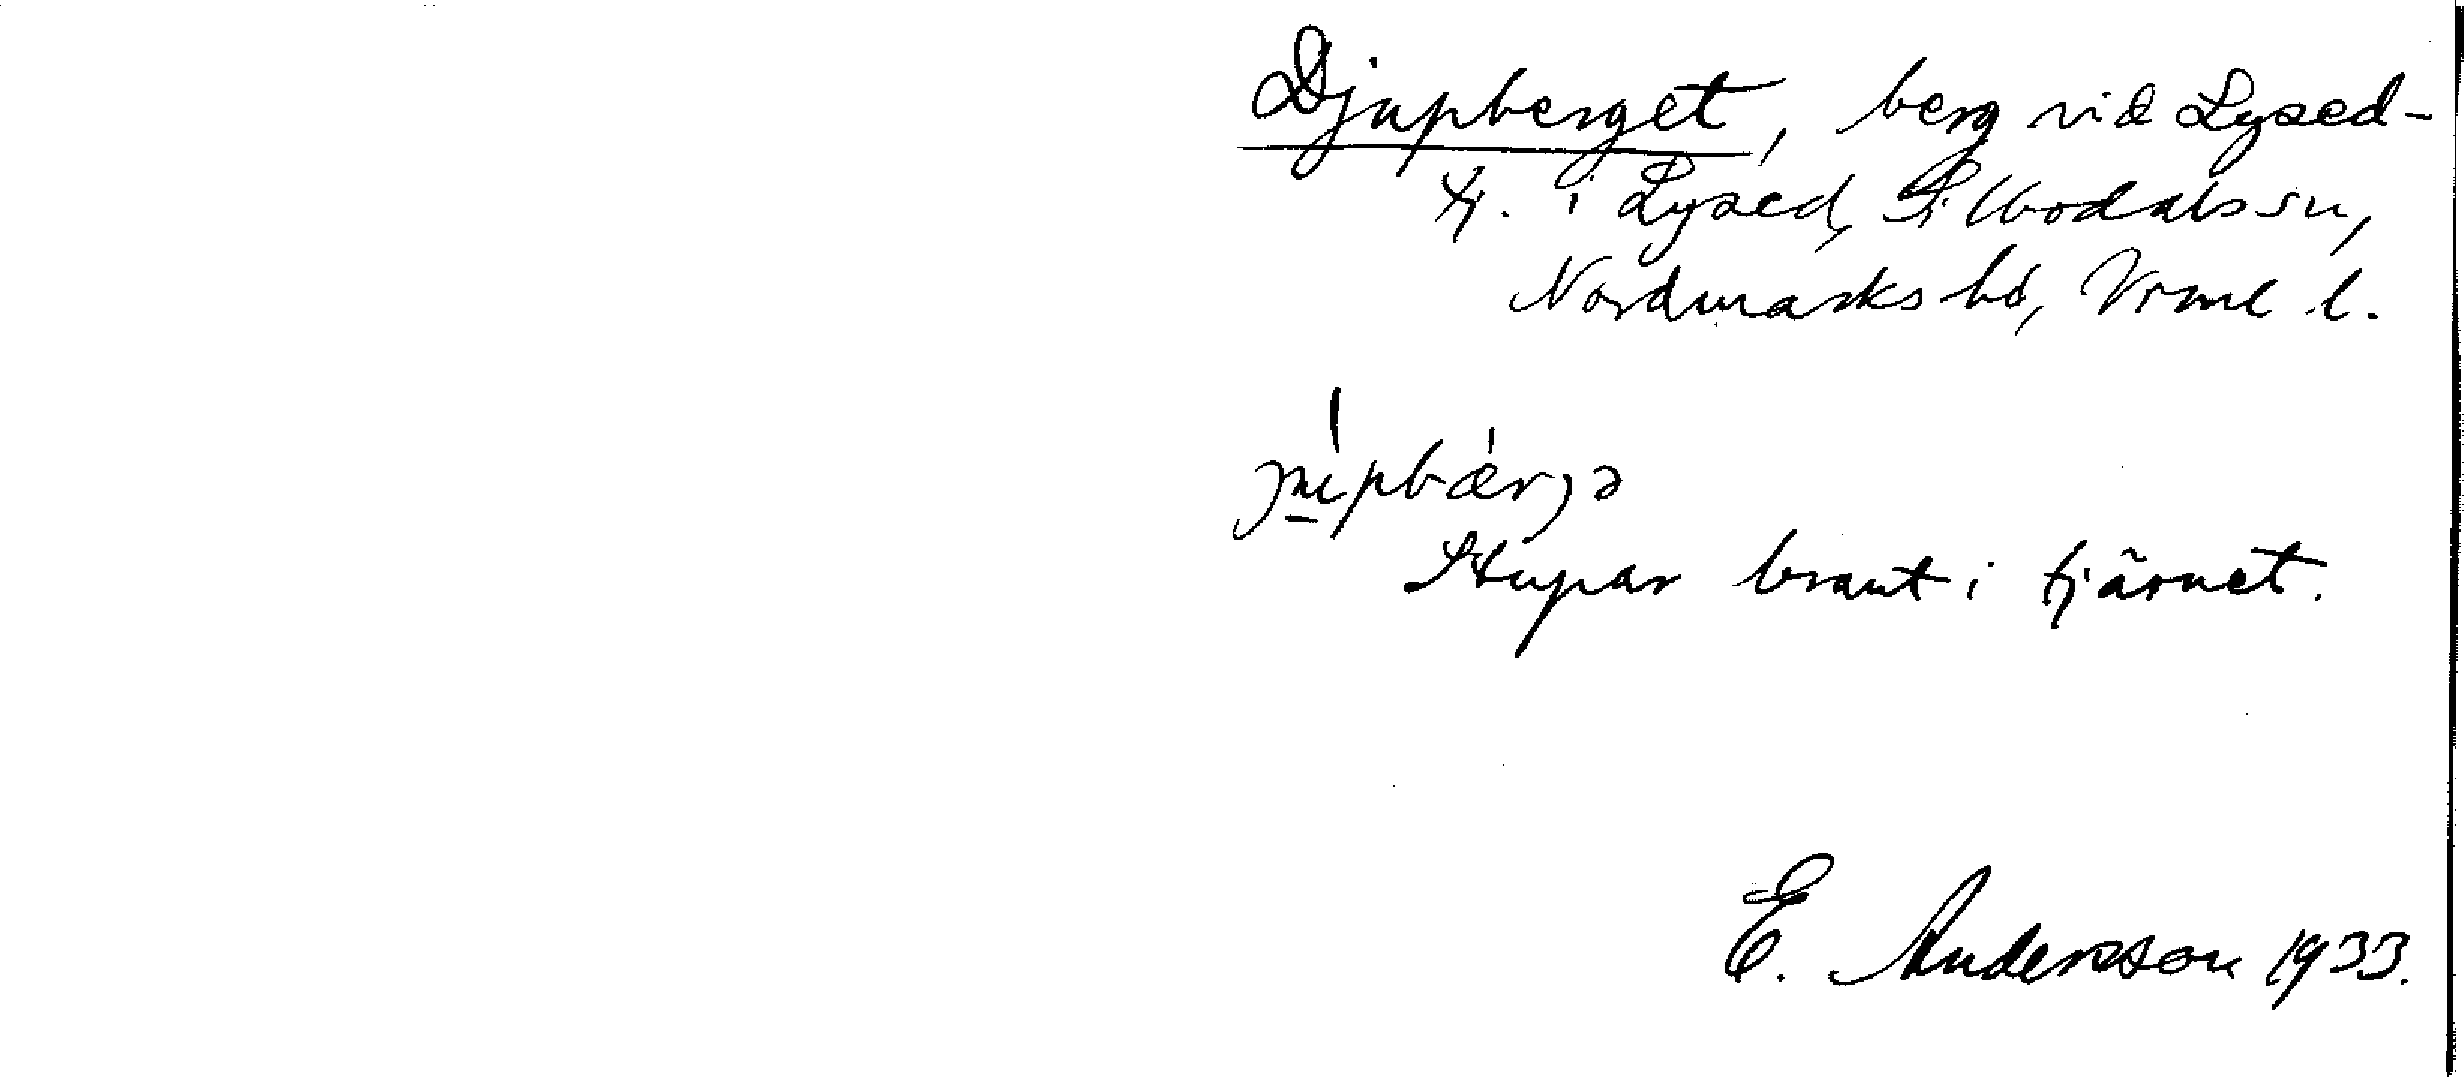 Djupberget, berg vid Lysed-
tj. i Lysed, Silbodals sn,
Nordmarks hd, Vrml l.
Stupar brant i tjärnet.
E. Andersson 1933.